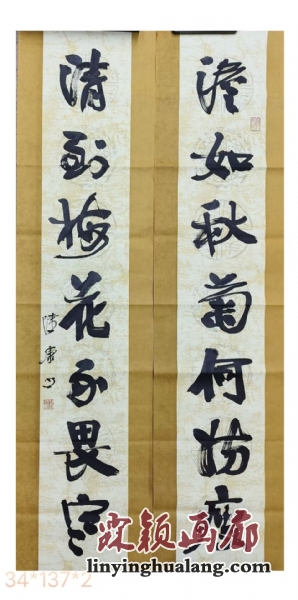 澹如秋菊何妨瘦
清到梅花不畏寒
颖画廊
linyinghualang.com
34*137*2